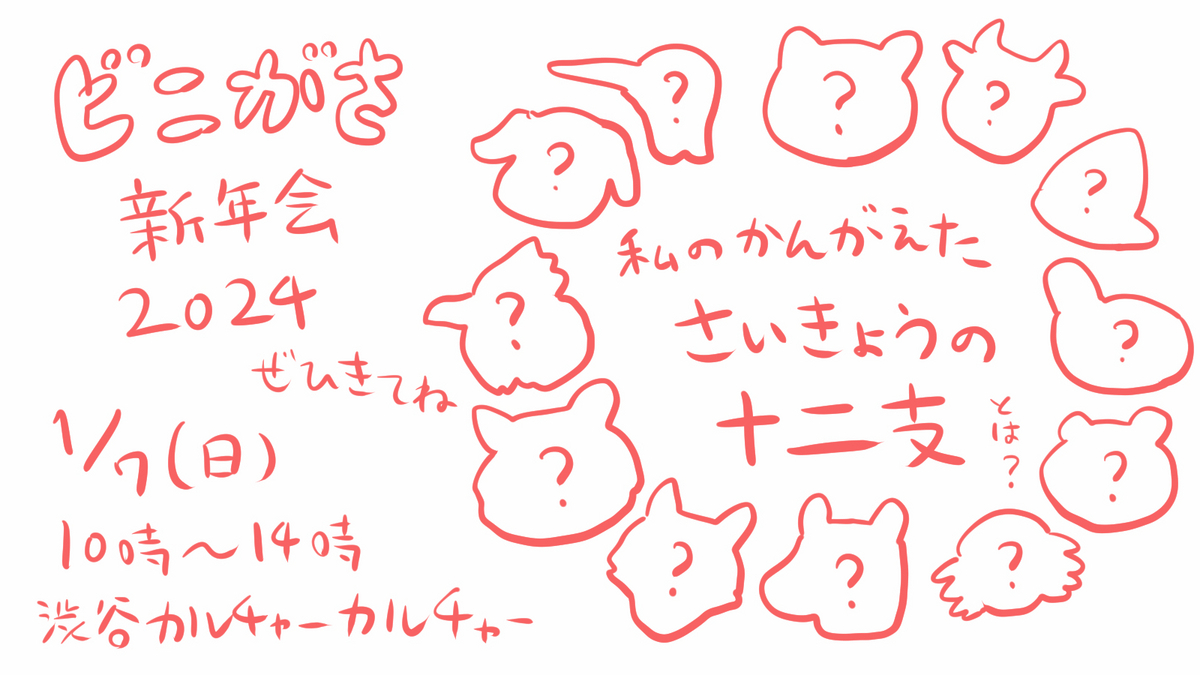 ビニがさ
新年会
2024
ぜひきてね
1/7(日)
10時〜14時
渋谷カルチャーカルチャー
私のかんがえた
さいきょうの
十二支
とは?
?
?
?
?
?
?
?
?
?
?
?
?